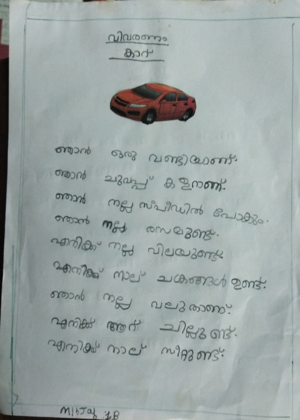 വിവരണം
കാറ്
ഞാൻ ഒരു വണ്ടിയാണ്.
ഞാൻ ചുവപ്പ് കളറാണ്.
ഞാൻ നല്ല സ്പീഡിൽ പോകും.
ഞാൻ നല്ല രസമുണ്ട്.
എനിക്ക് നല്ല വിലയുണ്ട്.
എനിക്ക് നാല് ചക്രങ്ങൾ ഉണ്ട്.
ഞാൻ നല്ല വലുതാണ്.
എനിക്ക് ആറ് ചില്ലുണ്ട്.
എനിക്ക് നാല് സീറ്റുണ്ട്.